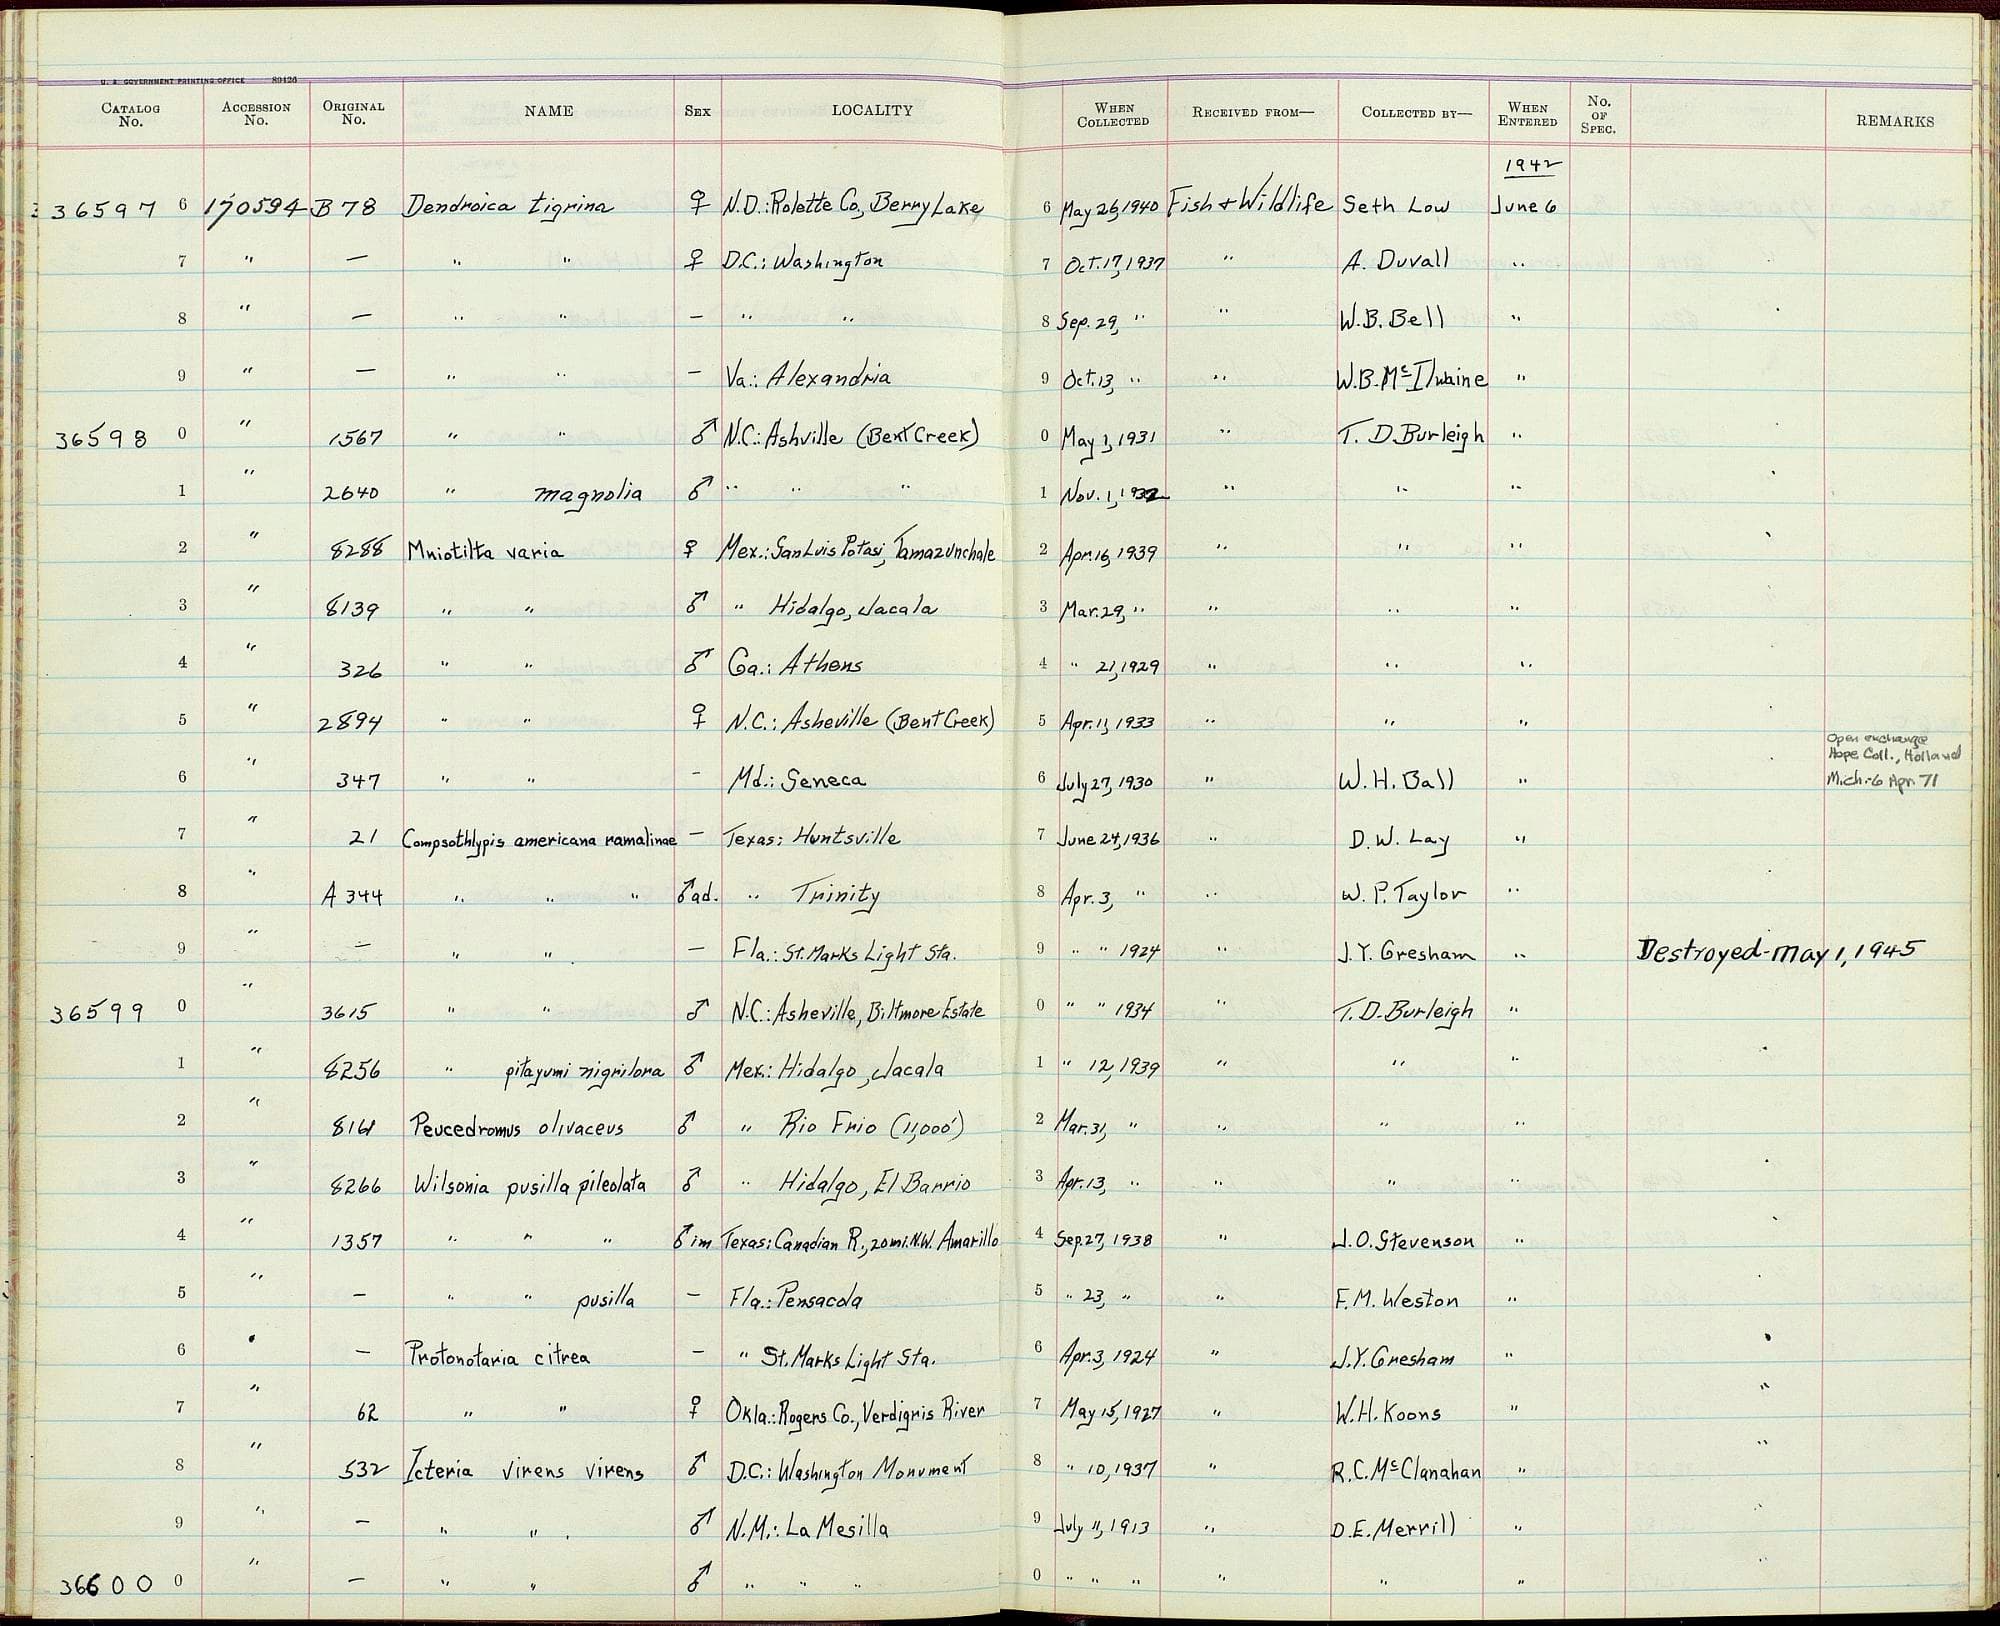 U. S. GOVERNMENT PRINTING OFFICE 89126
CATALOG No. ACCESSION No. ORIGINAL No. NAME SEX LOCALITY WHEN COLLECTED RECEIVED FROM— COLLECTED BY— WHEN ENTERED No. OF SPEC. REMARKS
1942
36597 6 170594 B78 Dendroica tigrina ♀ N.D.: Rolette Co., Berry Lake 6 May 26, 1940 Fish & Wildlife Seth Low June 6
7 " — " " ♀ D.C.: Washington 7 Oct. 17, 1937 " A. Duvall "
8 " — " " — " " 8 Sep. 29, " " W.B. Bell "
9 " — " " — Va.: Alexandria 9 Oct. 13, " " W.B. McIlwaine "
36598 0 " 1567 " " ♂ N.C.: Ashville (Bent Creek) 0 May 1, 1931 " T. D. Burleigh "
1 " 2640 " magnolia ♂ " " " 1 Nov. 1, 1932 " " "
2 " 8288 Mniotilta varia ♀ Mex.: San Luis Potasi, Tamazunchale 2 Apr. 16, 1939 " " "
3 " 8139 " " ♂ " Hidalgo, Jacala 3 Mar. 29, " " " "
4 " 326 " " ♂ Ga.: Athens 4 " 21, 1929 " " "
5 " 2894 " " ♀ N.C.: Asheville (Bent Creek) 5 Apr. 11, 1933 " " "
Open exchange
Hope Coll., Holland
6 " 347 " " - Md.: Seneca 6 July 27, 1930 " W. H. Ball " Mich.-6 Apr. 71
7 " 21 Compsothlypis americana ramalinae — Texas: Huntsville 7 June 24, 1936 " D. W. Lay "
8 " A 344 " " " ♂ ad. " Trinity 8 Apr. 3, " " W. P. Taylor "
9 " — " " — Fla.: St. Marks Light Sta. 9 " " 1924 " J. Y. Gresham " Destroyed-May 1, 1945
36599 0 " 3615 " " ♂ N.C.: Asheville, Biltmore Estate 0 " " 1934 " T. D. Burleigh "
1 " 8256 " pitayumi nigrilora ♂ Mex.: Hidalgo, Jacala 1 " 12, 1939 " " "
2 " 8161 Peucedromus olivaceus ♂ " Rio Frio (11,000') 2 Mar. 31, " " " "
3 " 8266 Wilsonia pusilla pileolata ♂ " Hidalgo, El Barrio 3 Apr. 13, " " " "
4 " 1357 " " " ♂ im Texas: Canadian R., 20 mi. N.W. Amarillo 4 Sep. 27, 1938 " J. O. Stevenson "
5 " — " " pusilla — Fla.: Pensacola 5 " 23, " " F. M. Weston "
6 • — Protonotaria citrea — " St. Marks Light Sta. 6 Apr. 3, 1924 " J. Y. Gresham "
7 " 62 " " ♀ Okla.: Rogers Co., Verdigris River 7 May 15, 1927 " W. H. Koons " "
8 " 532 Icteria virens virens ♂ D.C.: Washington Monument 8 " 10, 1937 " R. C. McClanahan " "
9 " — " " ♂ N.M.: La Mesilla 9 July 11, 1913 " D. E. Merrill " "
36600 0 " — " " ♂ " " " 0 " " " " " " "